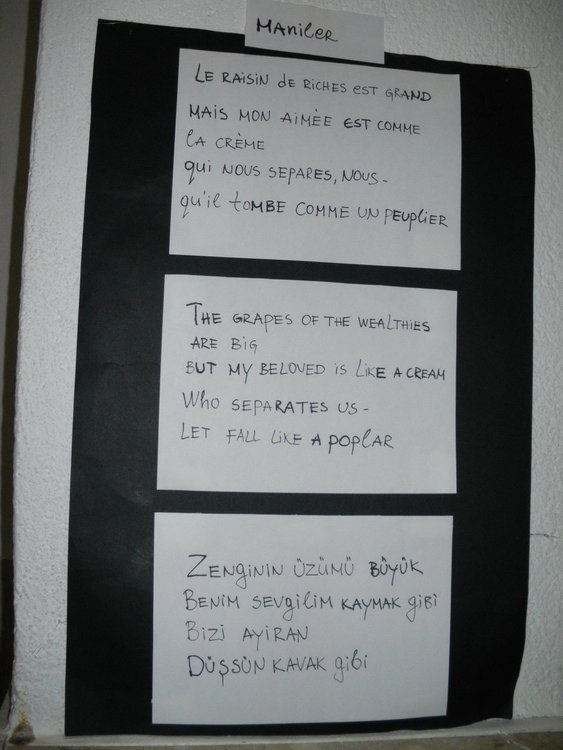 Maniler
Le raisin de riches est grand
mais mon aimée est comme
la crème
qui nous separes, nous-
qu'il tombe comme un peuplier
The grapes of the wealthies
are big
but my beloved is like a cream
Who separates us-
Let fall like a poplar
Zenginin üzümü büyük
Benim sevgilim kaymak gibi
Bizi ayiran
Düşsün kavak gibi